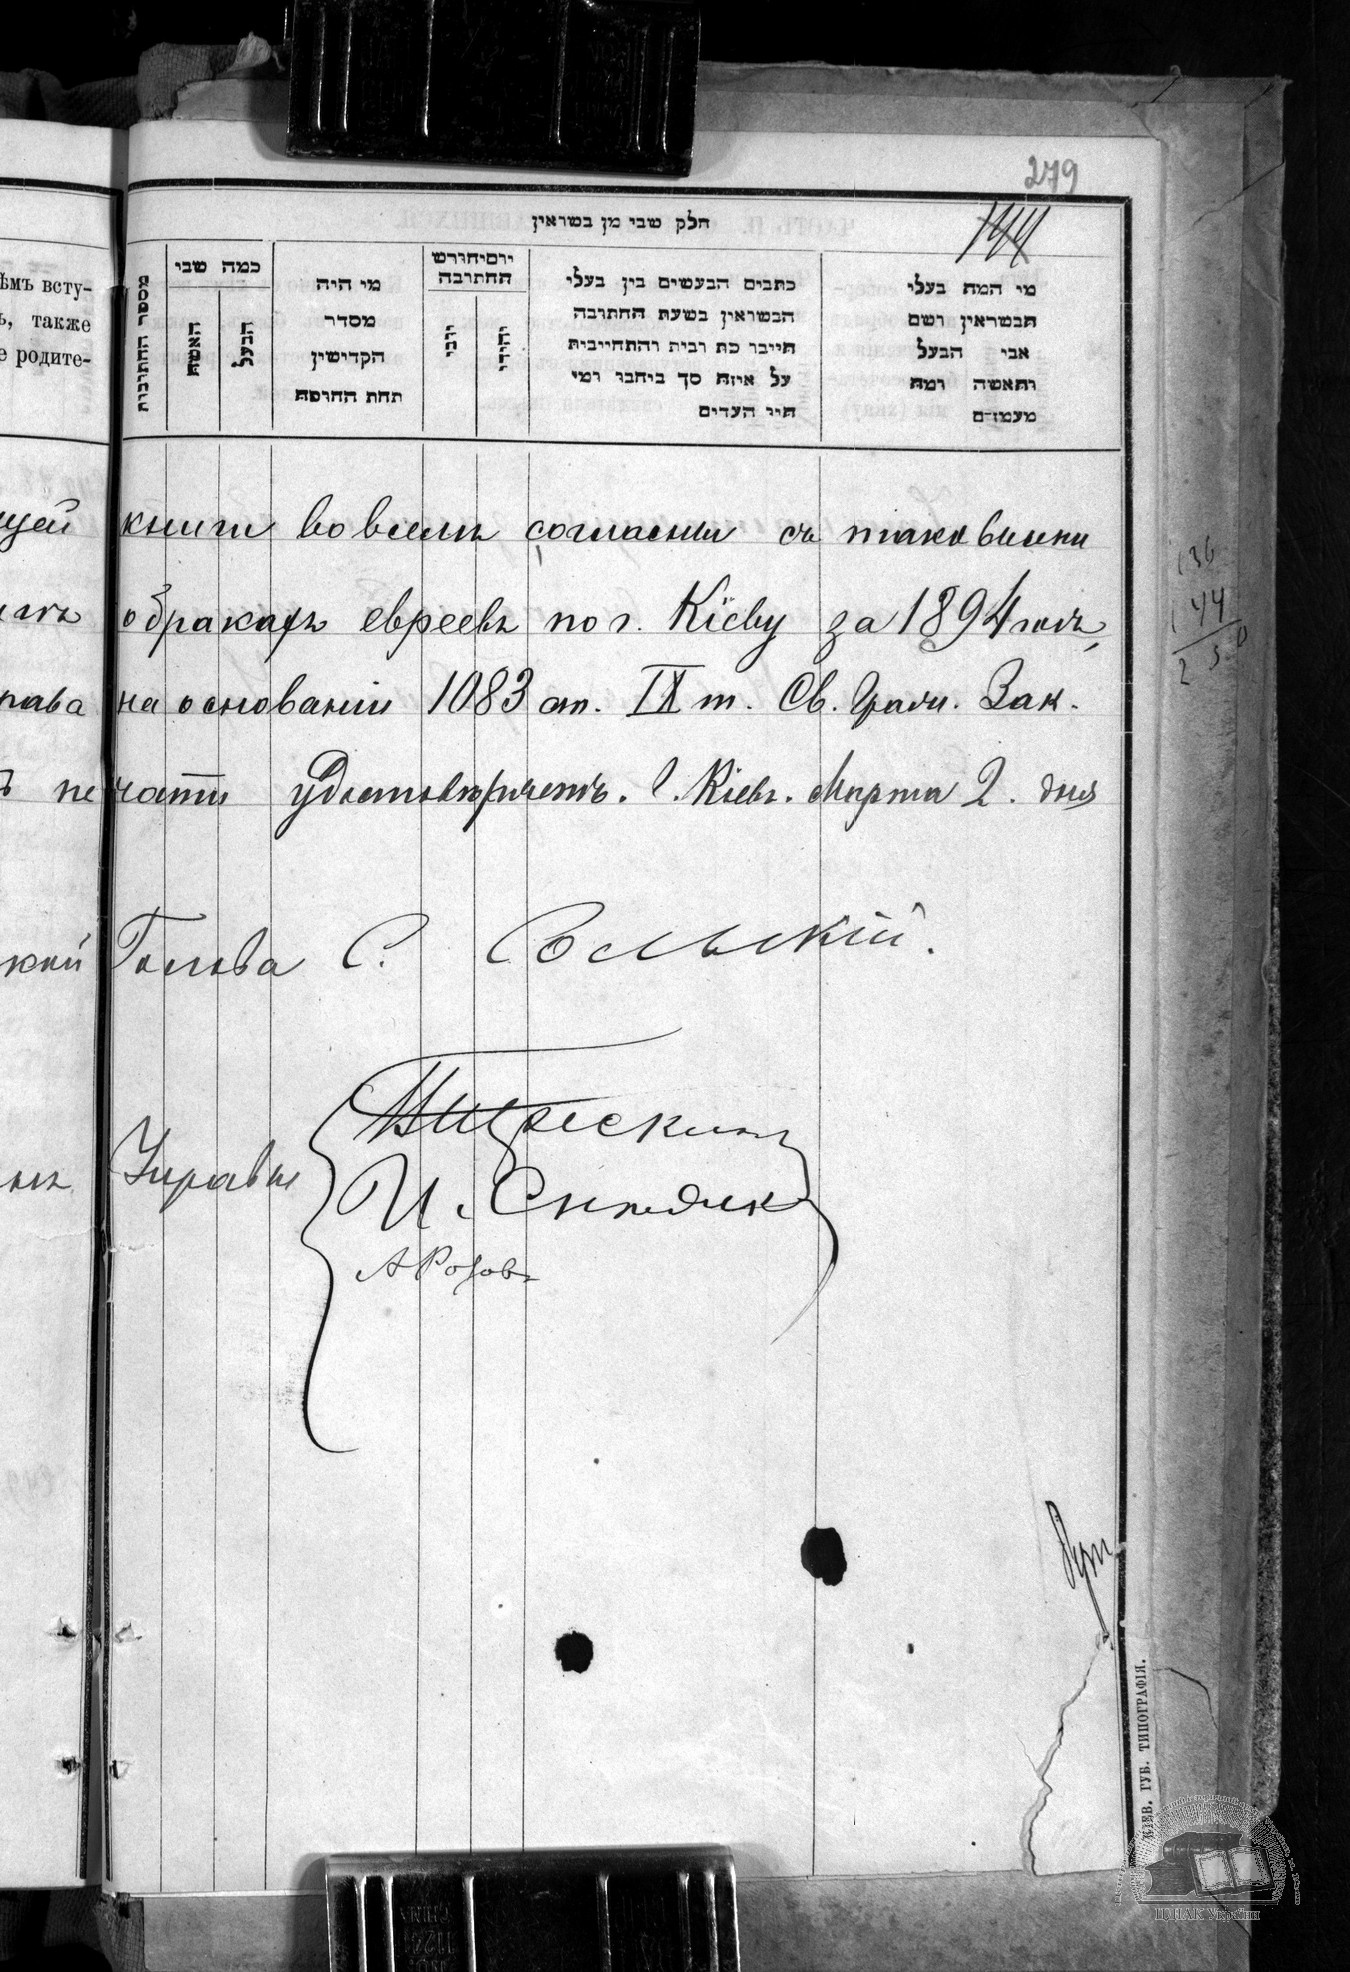 279
144
חלק שני מן הנשואין
מספר החתונות
כמה שני
האשה
הבעל
מי היה
מסדר
הקדישין
תחת החופה
יום וחודש
החתונה
יהודי
כתבים הנעשים בין בעלי
הנשואין בשעת החתונה
חייבו כת רבית והתחייבות
על איזה סך ביחבו ומי
היו העדים
מי המה בעלי
הנשואין ושם
אבי הבעל
והאשה ומה
מעמדם
ѣмъ всту-
ъ, также
е родите-
щей книги во всемъ согласны съ таковыми
о бракахъ евреевъ по г. Кіеву за 1894 годъ,
рава на основаніи 1083 ст. IX т. Св. Гражд. Зак.
ъ печати удостовѣряетъ. Г. Кіевъ. Марта 2. дня
ской Голова С. Сольскій.
Управы
И. Снѣжко
А Розовъ
136
144
2 3 0
КІЕВ. ГУБ. ТИПОГРАФІЯ.
ЦДІАК України